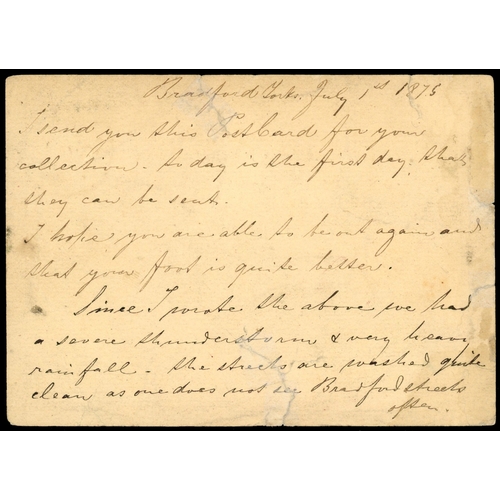 Bradford Yorks. July 1st 1875
I send you this Post Card for your
collection - today is the first day that
they can be sent.
I hope you are able to be out again and
that your foot is quite better.
Since I wrote the above we had
a severe thunderstorm & very heavy
rainfall - the streets are washed quite
clean as one does not see Bradford streets
often.